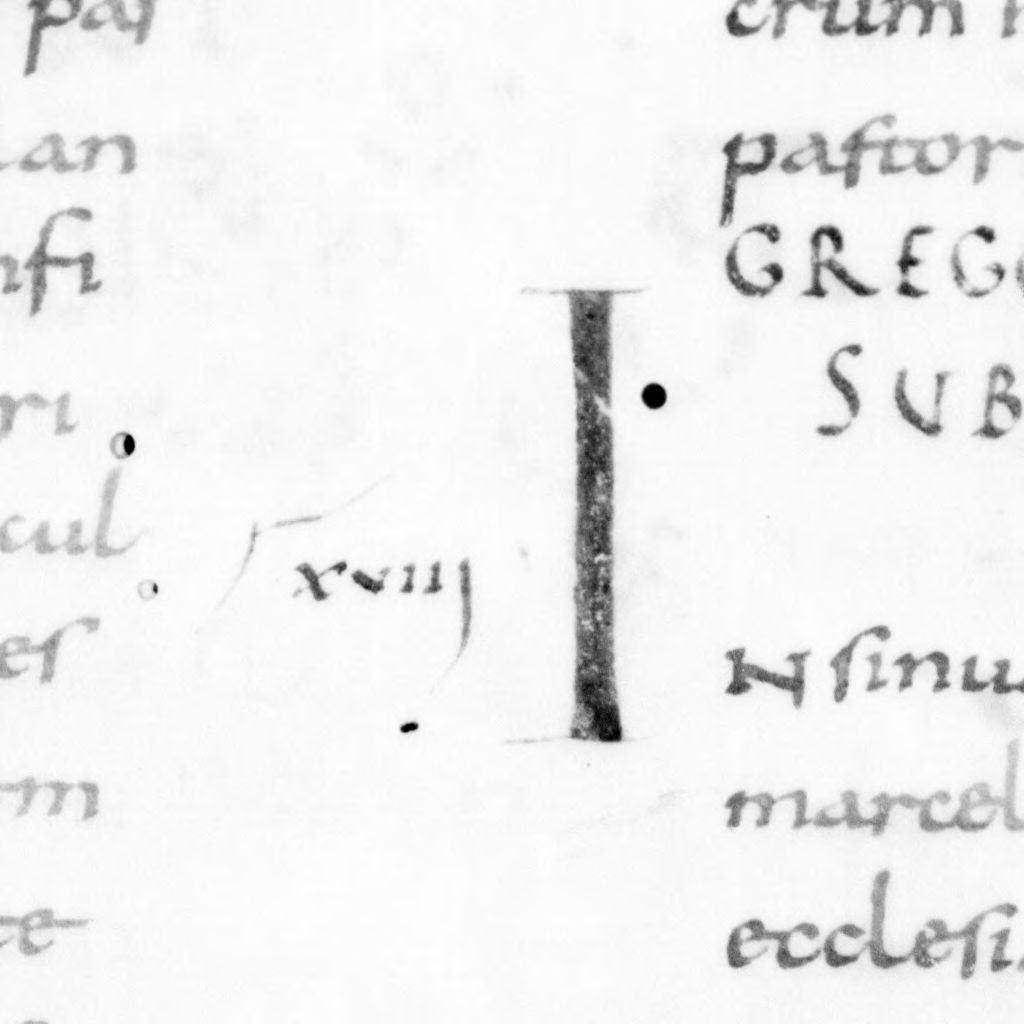 pas
an
nsi
ri
cul
es
rm
te
xviiij
crum
pastor
GREGO
SUB
I
N sinu
marcel
ecclesi